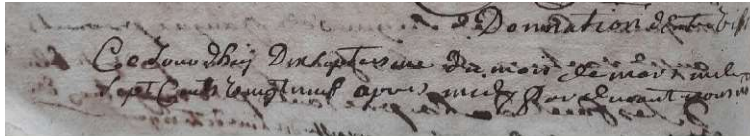 Donnation d'entre vifs
Ce Jourdhuy Dixseptiesme du mois de mars mil
Sept Cents vingt neuf apres midy par devant nous